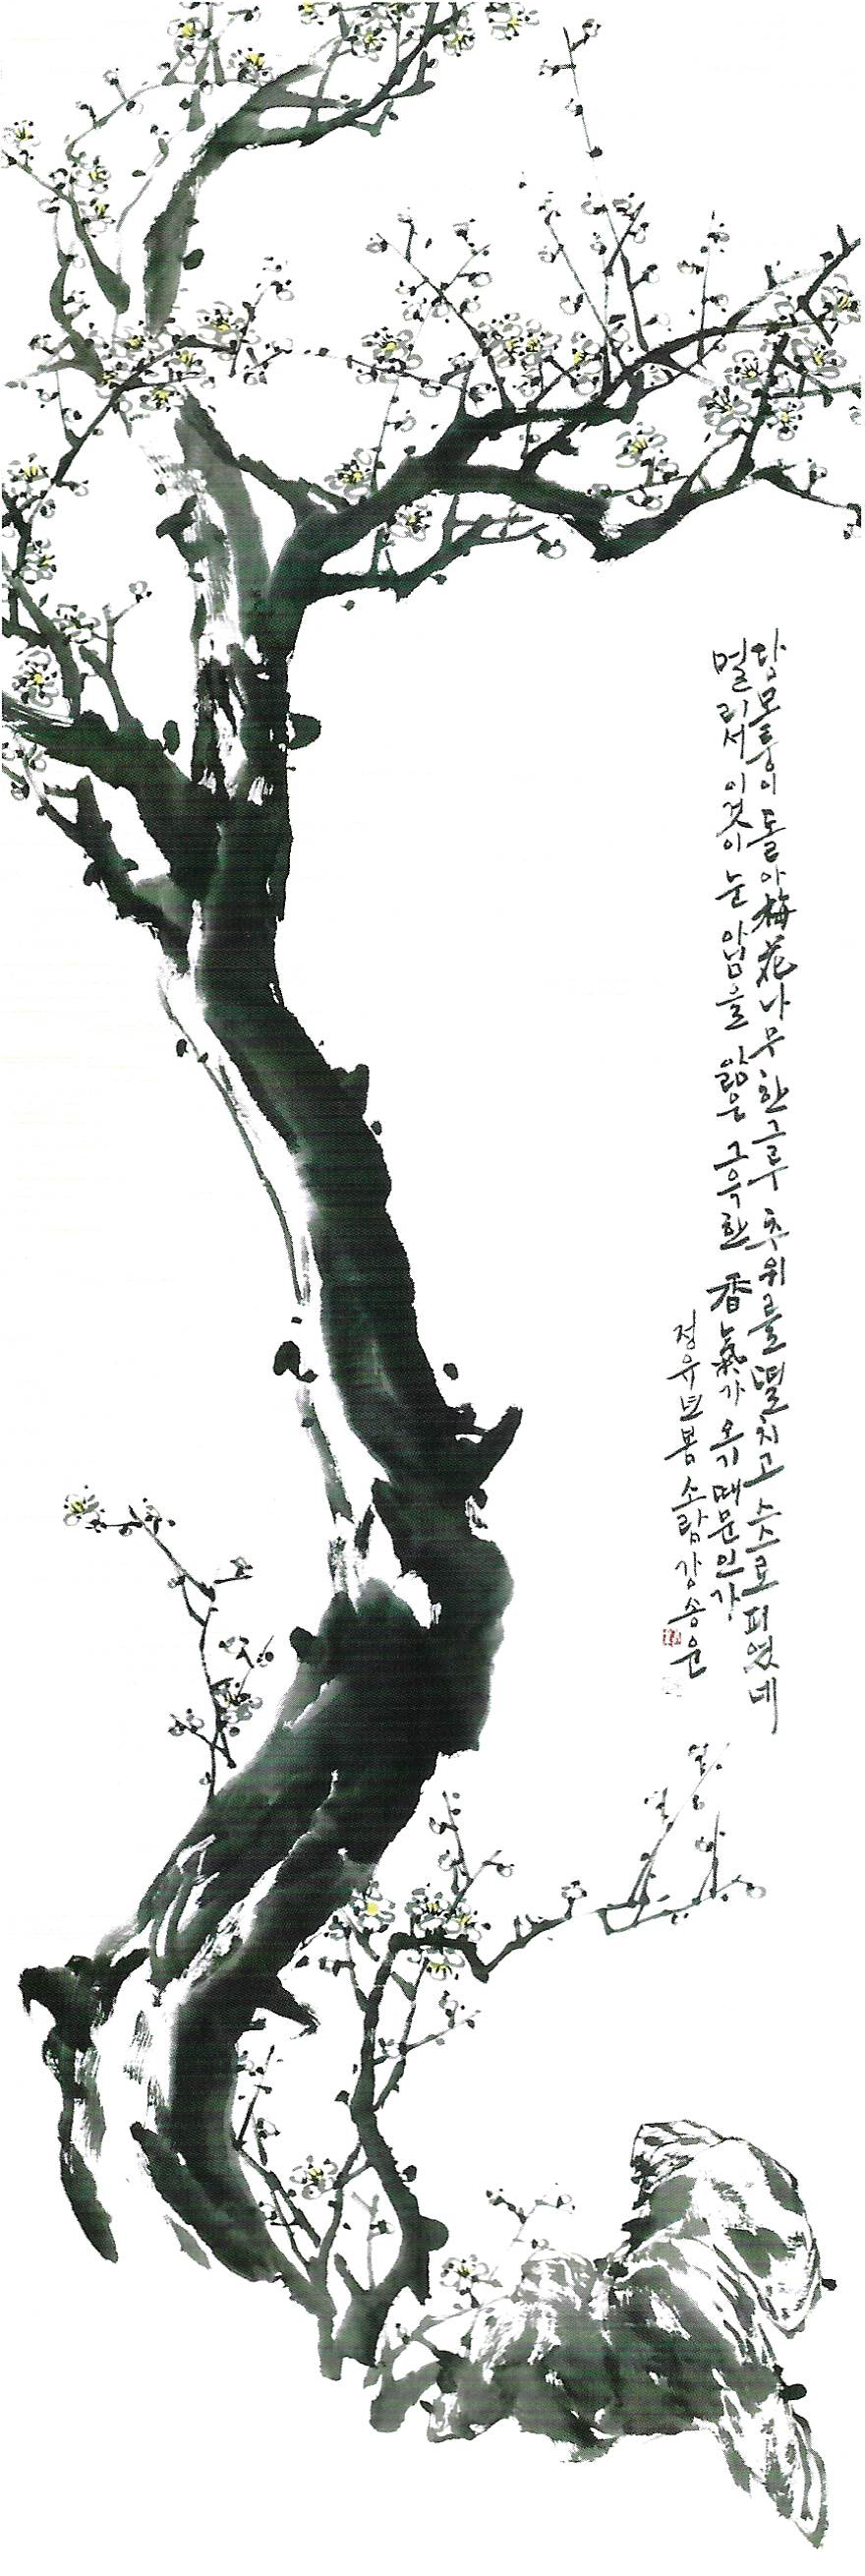 담모퉁이 돌아 梅花나무 한그루 추위를 떨치고 스스로 피었네
멀리서 이것이 눈 아님을 앎은 그윽한 香氣가 오기때문인가
정유년 봄 소람 강송운